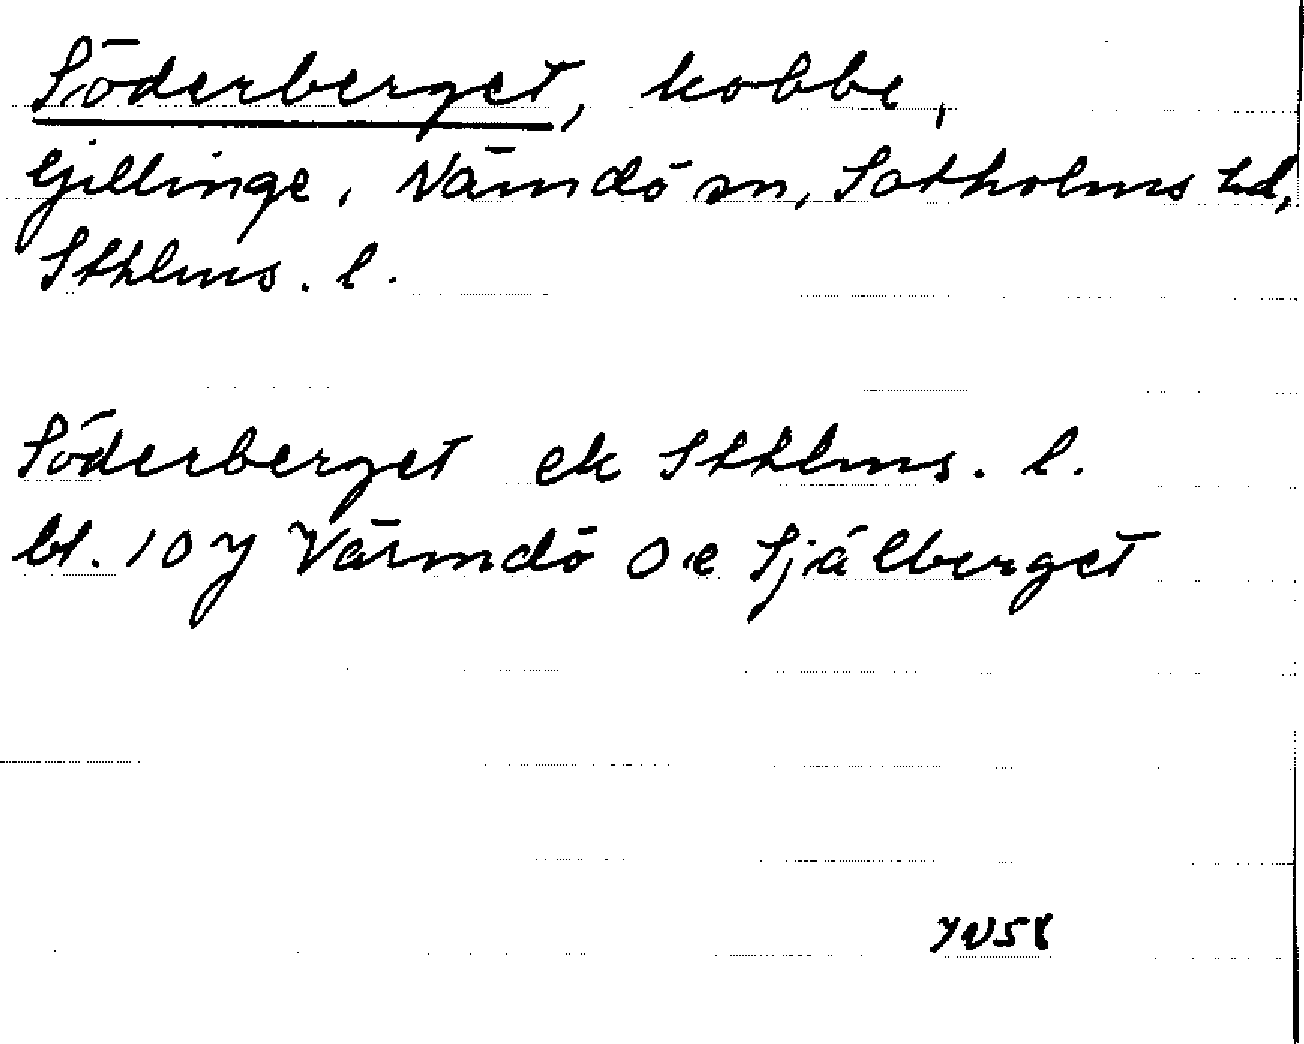 Söderberget, kobbe,
Gillinge, Nämdö sn, Sotholms hd,
Sthlms. l.
Söderberget ek Sthlms. l.
bl. 10 y Värmdö O e Själberget